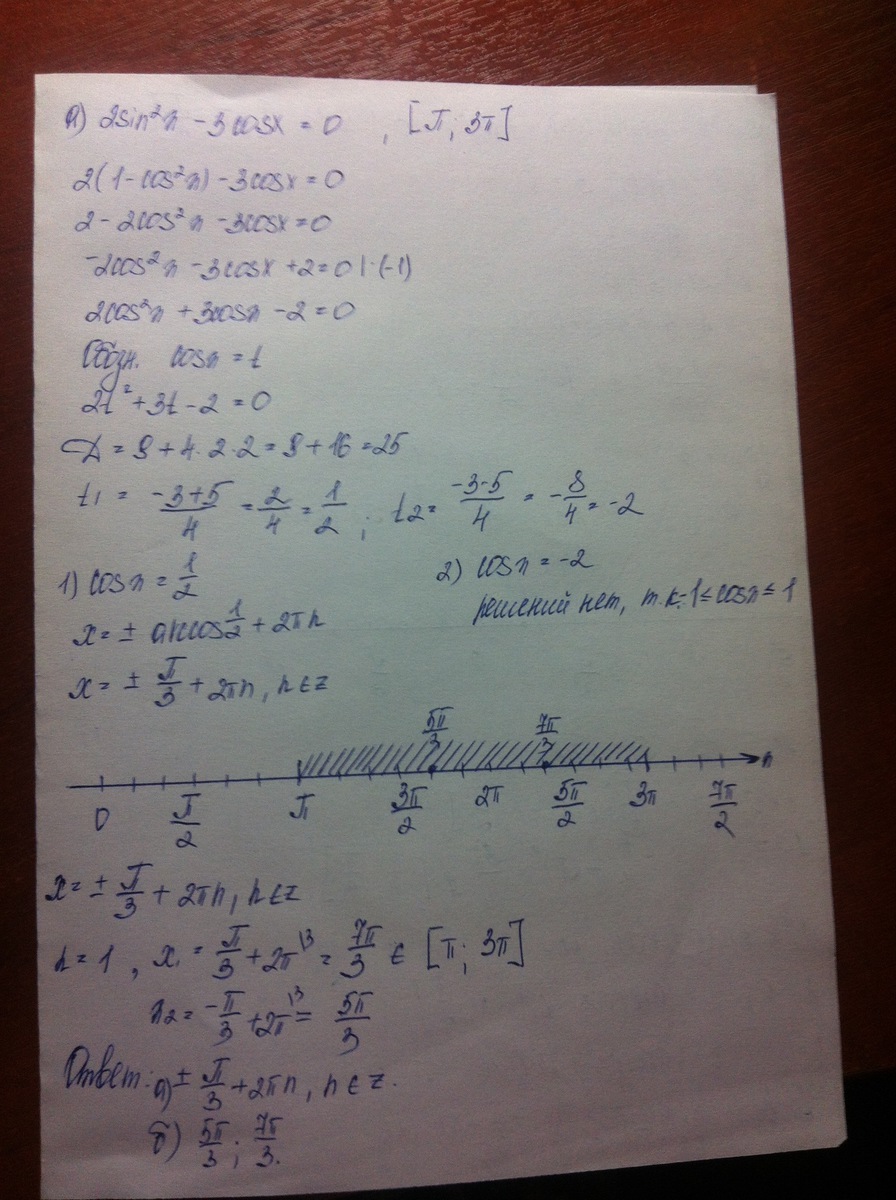 а) 2sin²x - 3cosx = 0 , [π; 3π]
2(1 - cos²x) - 3cosx = 0
2 - 2cos²x - 3cosx = 0
-2cos²x - 3cosx + 2 = 0 | ·(-1)
2cos²x + 3cosx - 2 = 0
Обозн. cosx = t
2t² + 3t - 2 = 0
D = 9 + 4·2·2 = 9 + 16 = 25
t₁ = (-3+5)/4 = 2/4 = 1/2 ; t₂ = (-3-5)/4 = -8/4 = -2
1) cosx = 1/2
2) cosx = -2
решений нет, т.к. -1 ≤ cosx ≤ 1
x = ± arccos 1/2 + 2πn
x = ± π/3 + 2πn, n ∈ Z
5π/3 7π/3
0 π/2 π 3π/2 2π 5π/2 3π 7π/2 x
x = ± π/3 + 2πn, n ∈ Z
n = 1, x₁ = π/3 + 2π\3 = 7π/3 ∈ [π; 3π]
x₂ = -π/3 + 2π\3 = 5π/3
Ответ: а) ± π/3 + 2πn, n ∈ Z.
б) 5π/3 ; 7π/3.